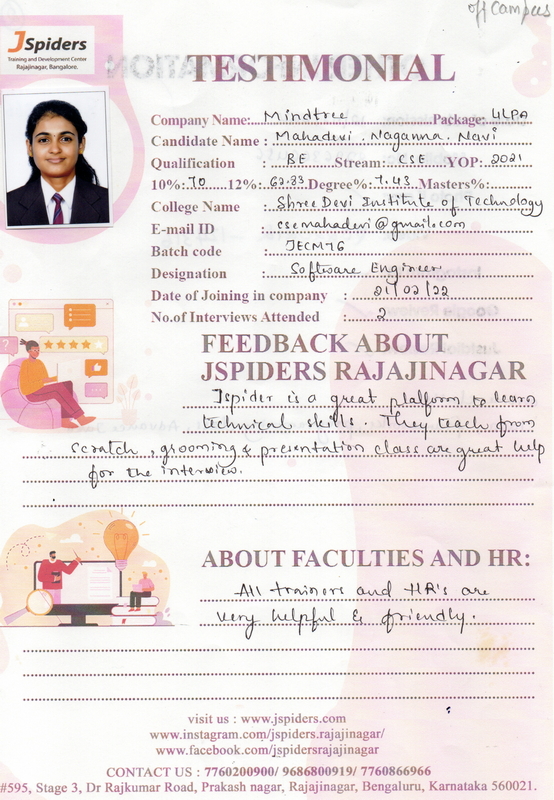 off Campus
JSpiders
Training and Development Center
Rajajinagar, Bangalore.
TESTIMONIAL
Company Name:... Mindtree Package: 4LPA
Candidate Name : Mahadevi . Naganna. Navi
Qualification : BE Stream: CSE YOP: 2021
10%: 70 12%: 62.83 Degree%: 7.43 Masters%:
College Name : Shree Devi Institute of Technology
E-mail ID : csemahadevi@gmail.com
Batch code : JECM76
Designation : Software Engineer
Date of Joining in company : 21/02/22
No.of Interviews Attended : 2
FEEDBACK ABOUT
JSPIDERS RAJAJINAGAR
Jspider is a great platform to learn
technical skills. They teach from
scratch , grooming & presentation class are great help
for the interview.
ABOUT FACULTIES AND HR:
All trainors and HR's are
very helpful & friendly.
visit us : www.jspiders.com
www.instagram.com/jspiders.rajajinagar/
www.facebook.com/jspidersrajajinagar
CONTACT US : 7760200900/ 9686800919/ 7760866966
#595, Stage 3, Dr Rajkumar Road, Prakash nagar, Rajajinagar, Bengaluru, Karnataka 560021.